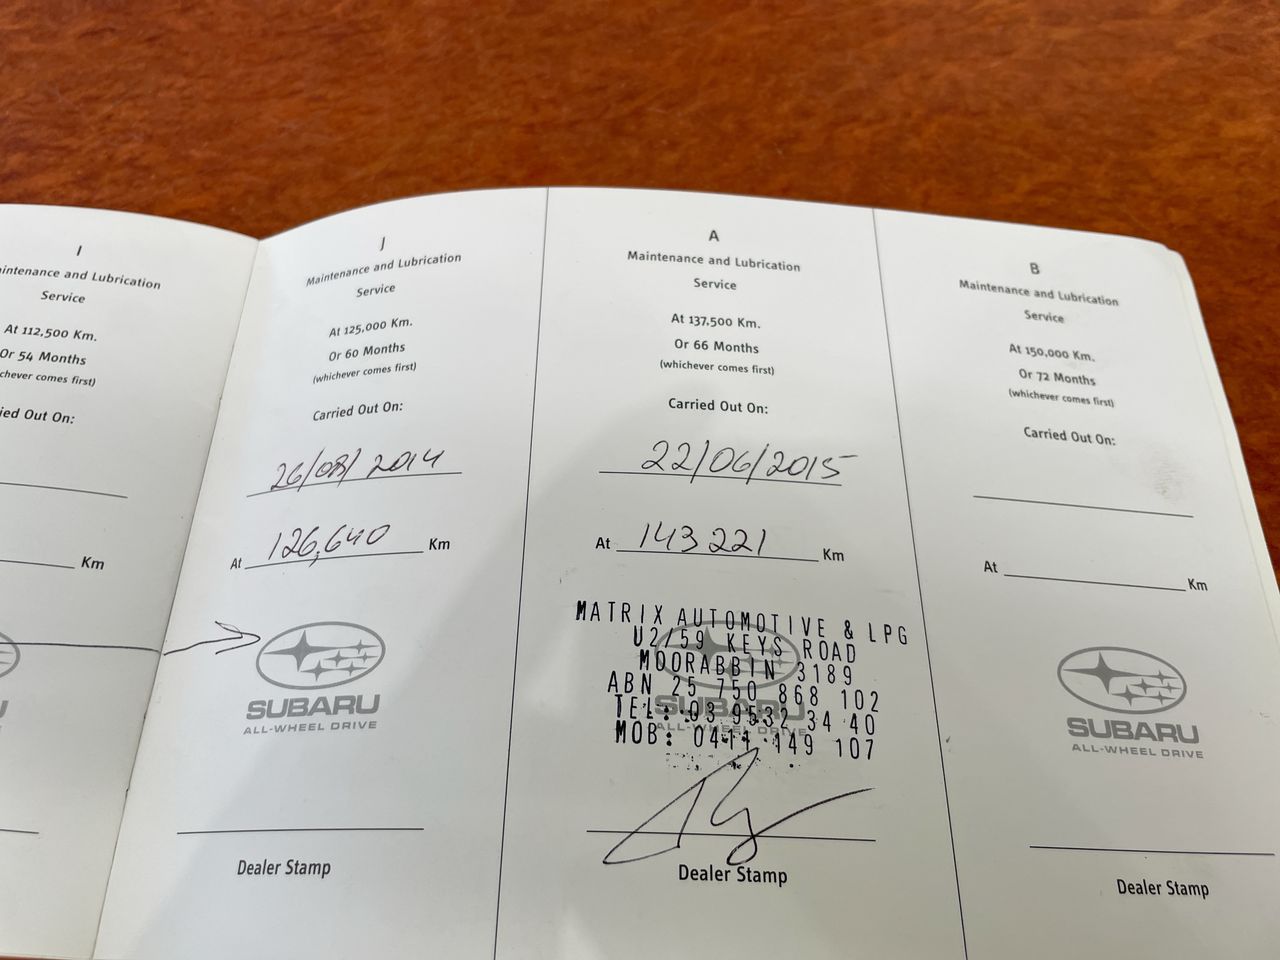 I
aintenance and Lubrication
Service
At 112,500 Km.
Or 54 Months
chever comes first)
ied Out On:
Km
J
Maintenance and Lubrication
Service
At 125,000 Km.
Or 60 Months
(whichever comes first)
Carried Out On:
26/08/2014
At 126,640 Km
SUBARU
ALL-WHEEL DRIVE
Dealer Stamp
A
Maintenance and Lubrication
Service
At 137,500 Km.
Or 66 Months
(whichever comes first)
Carried Out On:
22/06/2015
At 143221 Km
MATRIX AUTOMOTIVE & LPG
U2/59 KEYS ROAD
MOORABBIN 3189
ABN 25 750 868 102
TEL: 03 9532 34 40
MOB: 0411 149 107
SUBARU
ALL-WHEEL DRIVE
Dealer Stamp
B
Maintenance and Lubrication
Service
At 150,000 Km.
Or 72 Months
(whichever comes first)
Carried Out On:
At Km
SUBARU
ALL-WHEEL DRIVE
Dealer Stamp